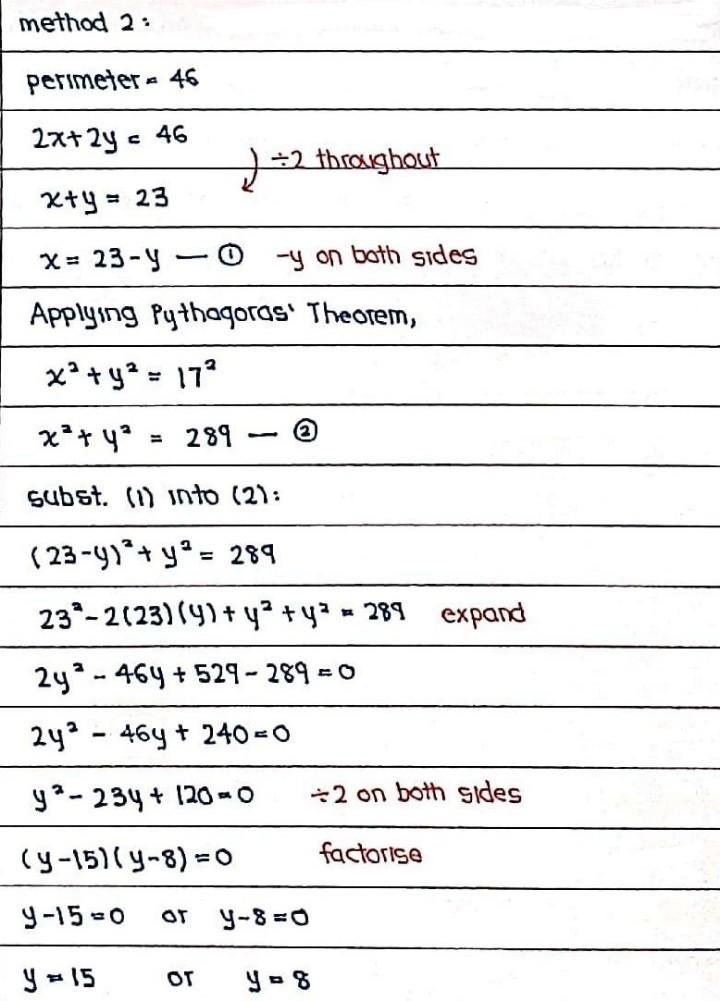 method 2:
perimeter = 46
2x+2y = 46
÷2 throughout
x+y = 23
x = 23-y — ① -y on both sides
Applying Pythagoras' Theorem,
x²+y² = 17²
x²+y² = 289 — ②
subst. (1) into (2):
(23-y)²+y² = 289
23²-2(23)(y)+y²+y² = 289 expand
2y²-46y+529-289=0
2y²-46y+240=0
y²-23y+120=0 ÷2 on both sides
(y-15)(y-8)=0 factorise
y-15=0 or y-8=0
y=15 or y=8